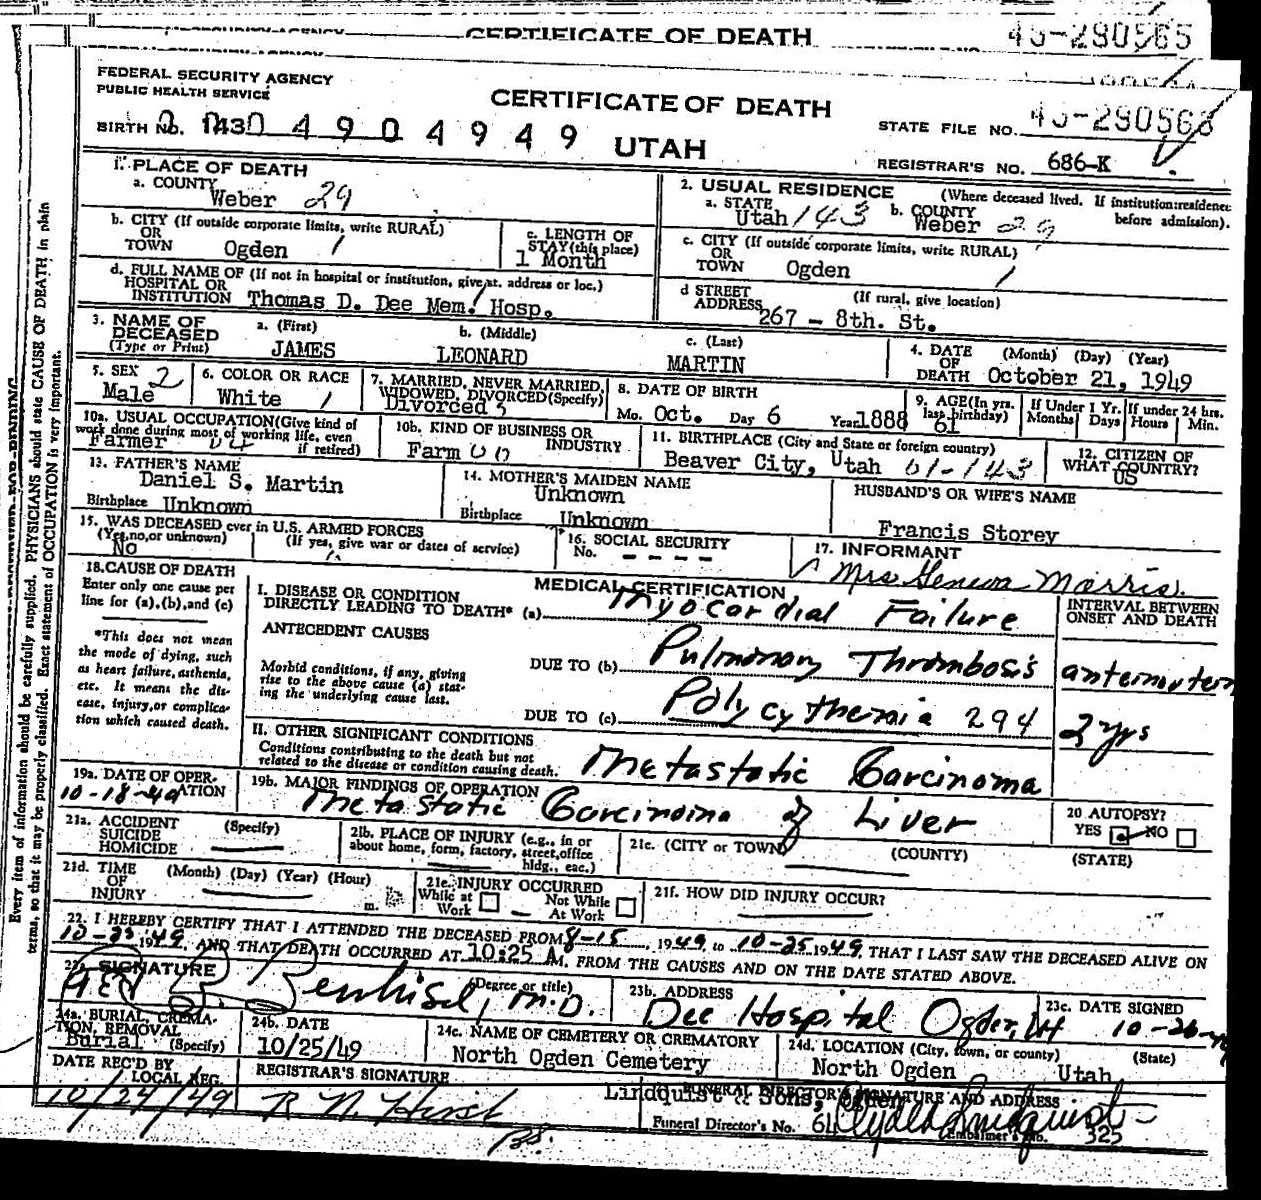 CERTIFICATE OF DEATH
FEDERAL SECURITY AGENCY
PUBLIC HEALTH SERVICE
CERTIFICATE OF DEATH
STATE FILE NO.
BIRTH NO. 4904949
UTAH
REGISTRAR'S NO. 686-K
1. PLACE OF DEATH
a. COUNTY
Weber 29
b. CITY (If outside corporate limits, write RURAL)
OR
TOWN Ogden
c. LENGTH OF
STAY (this place)
1 Month
d. FULL NAME OF (If not in hospital or institution, give st. address or loc.)
HOSPITAL OR
INSTITUTION Thomas D. Dee Mem. Hosp.
2. USUAL RESIDENCE (Where deceased lived. If institution:residence
before admission).
a. STATE
Utah 143
b. COUNTY
Weber 29
c. CITY (If outside corporate limits, write RURAL)
OR
TOWN Ogden
d STREET
ADDRESS
(If rural, give location)
267 - 8th. St.
3. NAME OF
DECEASED
(Type or Print)
a. (First)
JAMES
b. (Middle)
LEONARD
c. (Last)
MARTIN
4. DATE
OF
DEATH
(Month) (Day) (Year)
October 21, 1949
5. SEX 2
Male
6. COLOR OR RACE
White 1
7. MARRIED, NEVER MARRIED,
WIDOWED, DIVORCED (Specify)
Divorced
8. DATE OF BIRTH
Mo. Oct. Day 6 Year 1888
9. AGE (In yrs.
last birthday)
61
If Under 1 Yr.
Months Days
If under 24 hrs.
Hours Min.
10a. USUAL OCCUPATION (Give kind of
work done during most of working life, even
if retired)
Farmer
10b. KIND OF BUSINESS OR
INDUSTRY
Farm
11. BIRTHPLACE (City and State or foreign country)
Beaver City, Utah 01-143
12. CITIZEN OF
WHAT COUNTRY?
US
13. FATHER'S NAME
Daniel S. Martin
Birthplace Unknown
14. MOTHER'S MAIDEN NAME
Unknown
Birthplace Unknown
HUSBAND'S OR WIFE'S NAME
Francis Storey
15. WAS DECEASED ever in U.S. ARMED FORCES
(Yes, no, or unknown)
No
(If yes, give war or dates of service)
16. SOCIAL SECURITY
No. - - - -
17. INFORMANT
Mrs Geneva Morris.
18. CAUSE OF DEATH
Enter only one cause per
line for (a), (b), and (c)
*This does not mean
the mode of dying, such
as heart failure, asthenia,
etc. It means the dis-
ease, injury, or complica-
tion which caused death.
MEDICAL CERTIFICATION
I. DISEASE OR CONDITION
DIRECTLY LEADING TO DEATH* (a) Myocardial Failure
ANTECEDENT CAUSES
Morbid conditions, if any, giving
rise to the above cause (a) stat-
ing the underlying cause last.
DUE TO (b) Pulmonary Thrombosis
DUE TO (c) Polycythemia 294
INTERVAL BETWEEN
ONSET AND DEATH
2 yrs
II. OTHER SIGNIFICANT CONDITIONS
Conditions contributing to the death but not
related to the disease or condition causing death.
Metastatic Carcinoma
19a. DATE OF OPER-
ATION
10-18-49
19b. MAJOR FINDINGS OF OPERATION
Metastatic Carcinoma of Liver
20 AUTOPSY?
YES NO
21a. ACCIDENT
SUICIDE
HOMICIDE
(Specify)
21b. PLACE OF INJURY (e.g., in or
about home, form, factory, street, office
bldg., eac.)
21c. (CITY or TOWN) (COUNTY) (STATE)
21d. TIME
OF
INJURY
(Month) (Day) (Year) (Hour)
m.
21e. INJURY OCCURRED
While at
Work
Not While
At Work
21f. HOW DID INJURY OCCUR?
22. I HEREBY CERTIFY THAT I ATTENDED THE DECEASED FROM 8-15, 1949, to 10-25 1949, THAT I LAST SAW THE DECEASED ALIVE ON
10-25 1949, AND THAT DEATH OCCURRED AT 10:25 A M. FROM THE CAUSES AND ON THE DATE STATED ABOVE.
SIGNATURE
(Degree or title)
M.D.
23b. ADDRESS
Dee Hospital Ogden, Ut
23c. DATE SIGNED
24a. BURIAL, CREMA-
TION, REMOVAL
Burial (Specify)
24b. DATE
10/25/49
24c. NAME OF CEMETERY OR CREMATORY
North Ogden Cemetery
24d. LOCATION (City, town, or county) (State)
North Ogden Utah
DATE REC'D BY
LOCAL REG.
10/24/49
REGISTRAR'S SIGNATURE
FUNERAL DIRECTOR'S SIGNATURE AND ADDRESS
Lindquist & Sons, Ogden
Funeral Director's No.
Embalmer's No. 325
Every item of information should be carefully supplied. PHYSICIANS should state CAUSE OF DEATH in plain
terms, so that it may be properly classified. Exact statement of OCCUPATION is very important.